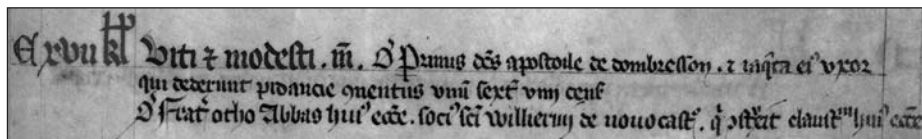 E xvii kl' Viti ⁊ modesti. m̄. O' Primus dc̄s apostoile de dombresson. ⁊ iaq̄ta ei' vxor
qui dederunt pidancie ꝯuentus vnū sext' vini cens'
O' Frat' otho Abbas hui' ecc̄e. soci' sc̄i Willermi de nouocast'. q̄ ꝯst̄xit claust' hui' ecc̄e